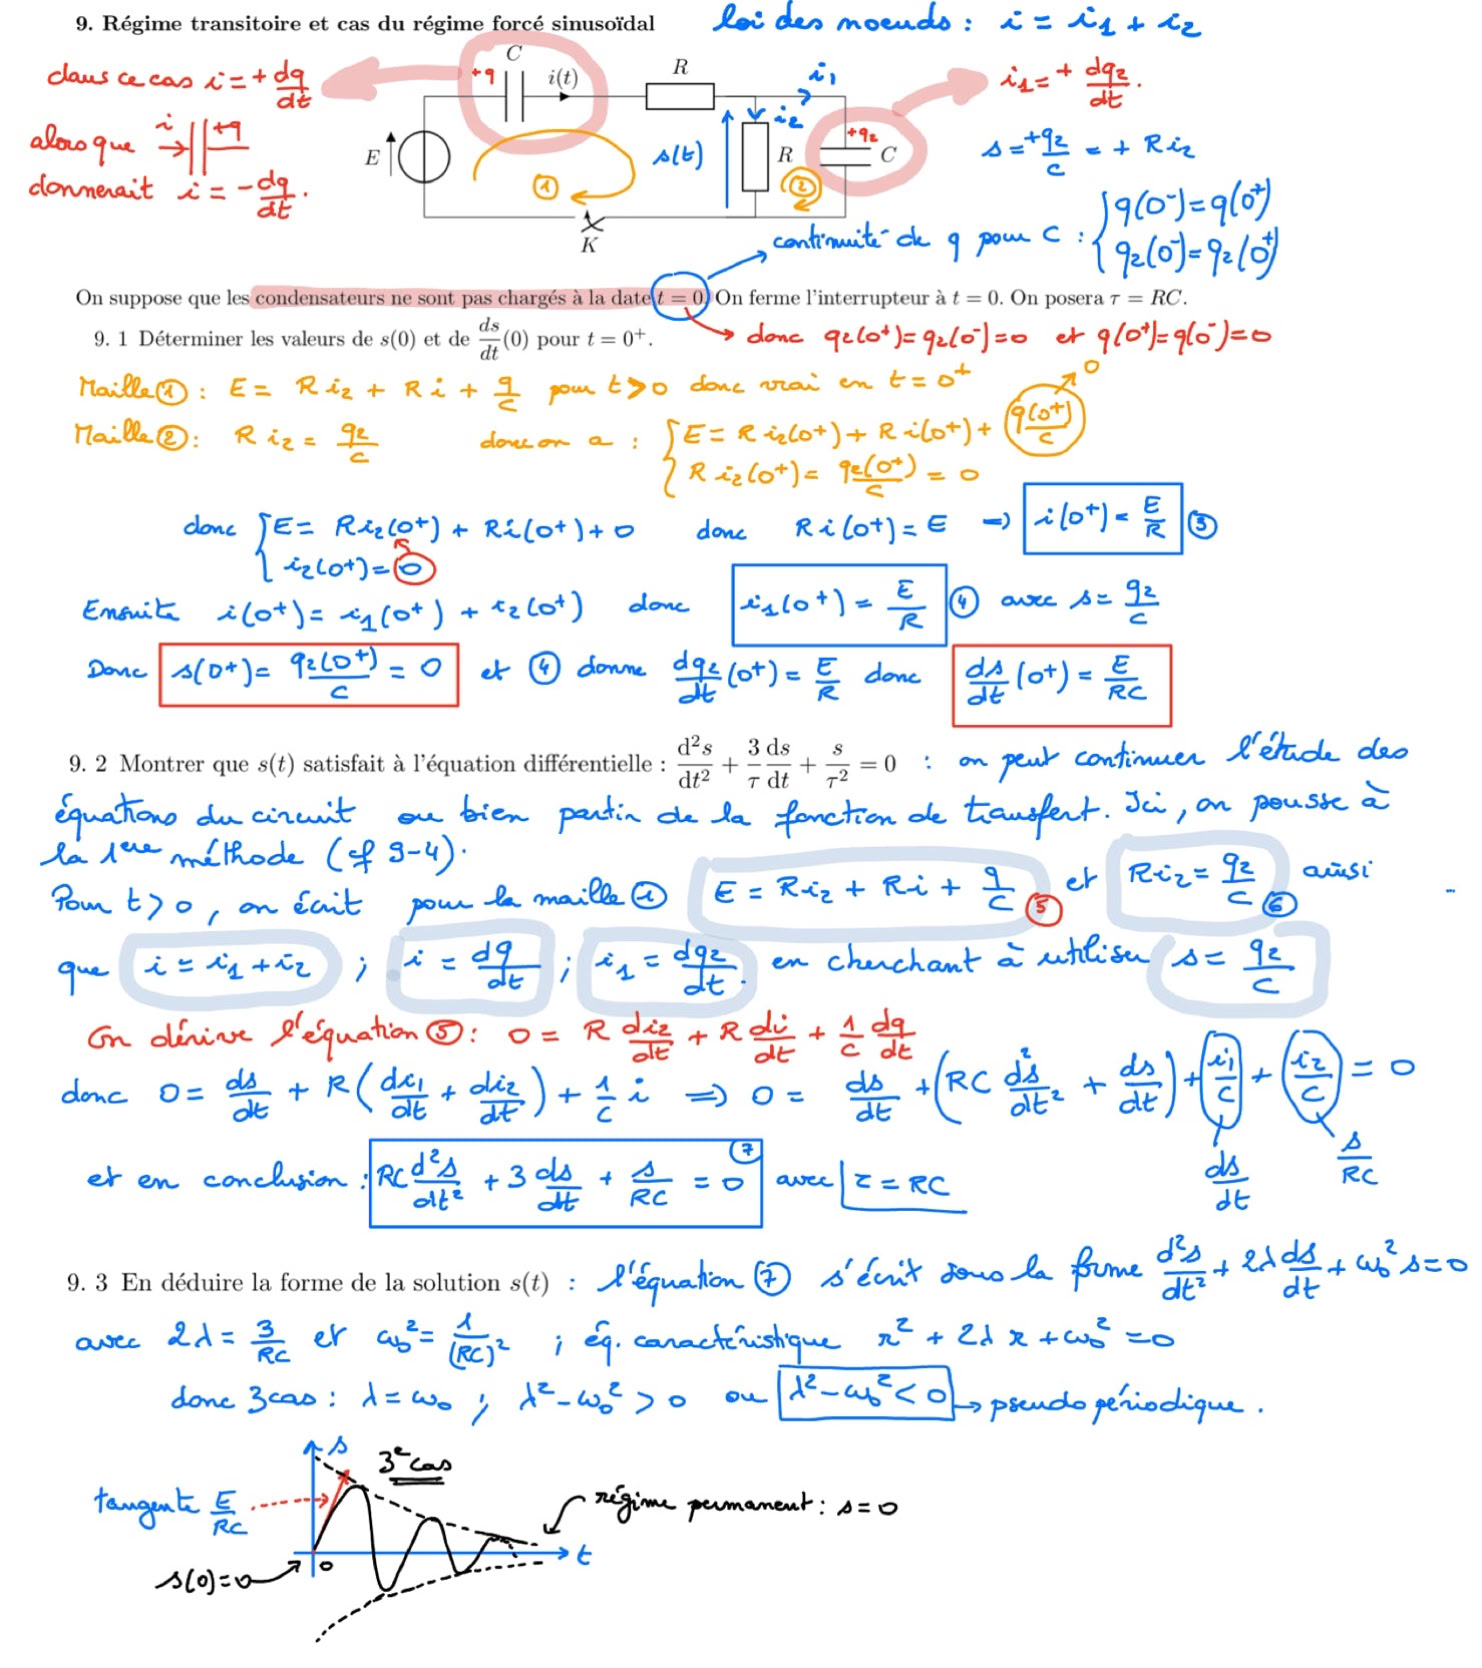 9. Régime transitoire et cas du régime forcé sinusoïdal
loi des noeuds : i = i₁ + i₂
dans ce cas i = + dq/dt
alors que i → || +q
donnerait i = - dq/dt.
C
+q
i(t)
R
i₁
i₂
E
s(t)
R
+q₂
C
①
②
K
i₁ = + dq₂/dt.
s = +q₂/C = + R i₂
continuité de q pour C : { q(0⁻) = q(0⁺)
q₂(0⁻) = q₂(0⁺)
On suppose que les condensateurs ne sont pas chargés à la date t = 0. On ferme l'interrupteur à t = 0. On posera τ = RC.
9. 1 Déterminer les valeurs de s(0) et de ds/dt (0) pour t = 0⁺.
donc q₂(0⁺) = q₂(0⁻) = 0 et q(0⁺) = q(0⁻) = 0
Maille ① : E = R i₂ + R i + q/C pour t > 0 donc vrai en t = 0⁺
Maille ② : R i₂ = q₂/C donc on a : { E = R i₂(0⁺) + R i(0⁺) + q(0⁺)/C → 0
R i₂(0⁺) = q₂(0⁺)/C = 0
donc { E = R i₂(0⁺) + R i(0⁺) + 0 donc R i(0⁺) = E ⇒ i(0⁺) = E/R ③
i₂(0⁺) = 0
Ensuite i(0⁺) = i₁(0⁺) + i₂(0⁺) donc i₁(0⁺) = E/R ④ avec s = q₂/C
Donc s(0⁺) = q₂(0⁺)/C = 0 et ④ donne dq₂/dt (0⁺) = E/R donc ds/dt (0⁺) = E/RC
9. 2 Montrer que s(t) satisfait à l'équation différentielle : d²s/dt² + 3/τ ds/dt + s/τ² = 0 : on peut continuer l'étude des
équations du circuit ou bien partir de la fonction de transfert. Ici, on pousse à
la 1ère méthode (cf 9-4).
Pour t > 0, on écrit pour la maille ① E = R i₂ + R i + q/C ⑤ et R i₂ = q₂/C ⑥ ainsi
que i = i₁ + i₂ ; i = dq/dt ; i₁ = dq₂/dt. en cherchant à utiliser s = q₂/C
On dérive l'équation ⑤ : 0 = R di₂/dt + R di/dt + 1/C dq/dt
donc 0 = ds/dt + R ( di₁/dt + di₂/dt ) + 1/C i ⇒ 0 = ds/dt + ( RC d²s/dt² + ds/dt ) + ( i₁/C ) + ( i₂/C ) = 0
ds/dt
s/RC
et en conclusion : RC d²s/dt² + 3 ds/dt + s/RC = 0 ⑦ avec τ = RC
9. 3 En déduire la forme de la solution s(t) : l'équation ⑦ s'écrit sous la forme d²s/dt² + 2λ ds/dt + ω₀² s = 0
avec 2λ = 3/RC et ω₀² = 1/(RC)² ; éq. caractéristique r² + 2λ r + ω₀² = 0
donc 3 cas : λ = ω₀ ; λ² - ω₀² > 0 ou λ² - ω₀² < 0 → pseudo périodique.
s
3e cas
tangente E/RC
régime permanent : s = 0
t
s(0) = 0
0